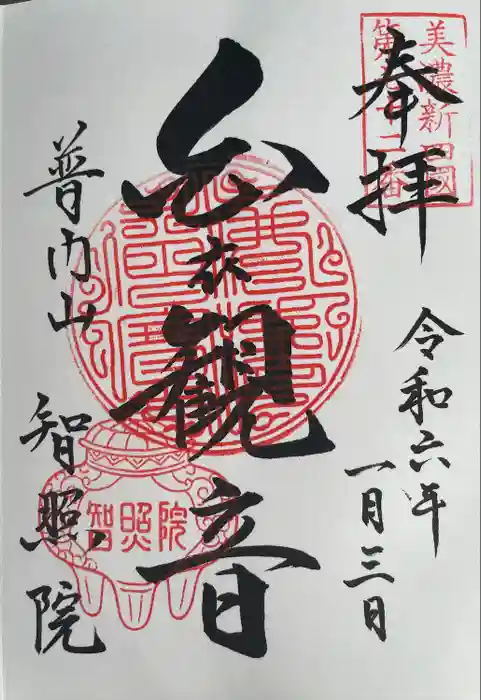 美濃新四國
奉拝
令和六年
一月三日
白衣観音
普門山 智照院
智照院